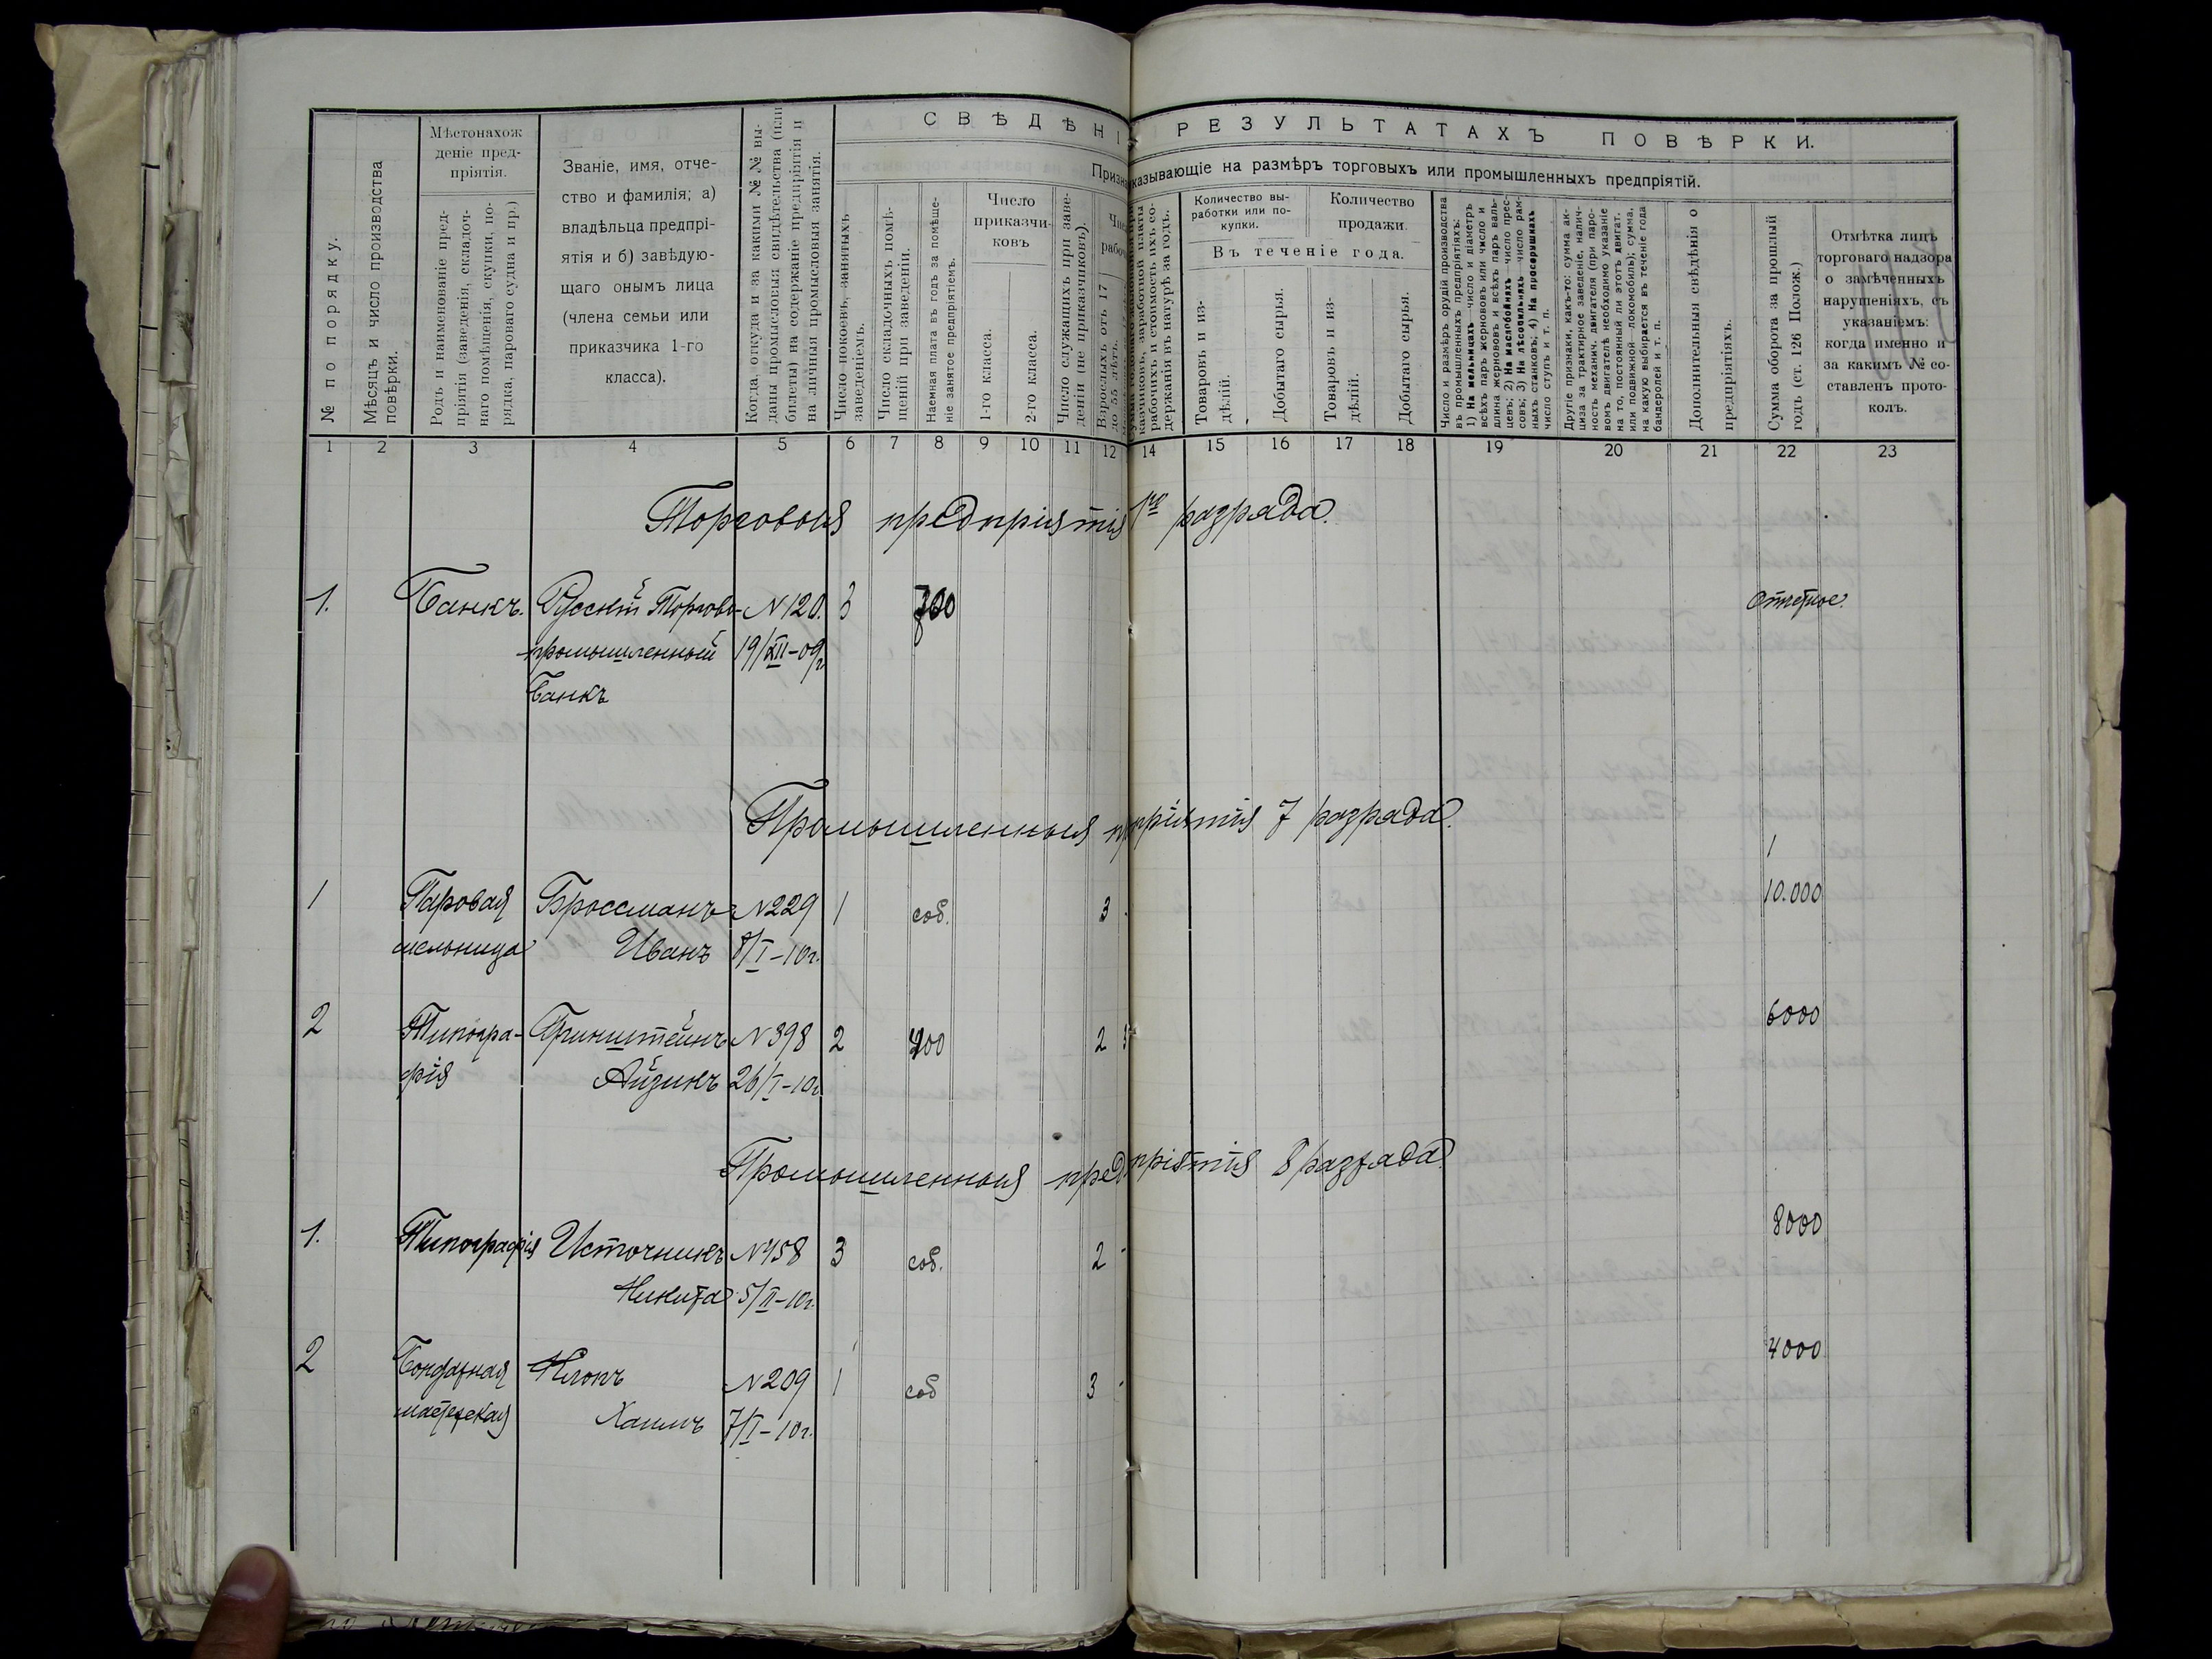 СВѢДѢНІ РЕЗУЛЬТАТАХЪ ПОВѢРКИ.
Призна казывающіе на размѣръ торговыхъ или промышленныхъ предпріятій.
№ по порядку.
Мѣсяцъ и число производства
повѣрки.
Мѣстонахож
деніе пред-
пріятія.
Родъ и наименованіе пред-
пріятія (заведенія, складоч-
наго помѣщенія, скупки, по-
рядка, пароваго судна и пр.)
Званіе, имя, отче-
ство и фамилія; а)
владѣльца предпрі-
ятія и б) завѣдую-
щаго онымъ лица
(члена семьи или
приказчика 1-го
класса).
Когда, откуда и за какими №№ вы-
даны промысловыя свидѣтельства (или
билеты) на содержаніе предпріятія и
на личныя промысловыя занятія.
Число покоевъ, занятыхъ
заведеніемъ.
Число складочныхъ помѣ-
щеній при заведеніи.
Наемная плата въ годъ за помѣще-
ніе занятое предпріятіемъ.
Число
приказчи-
ковъ
1-го класса.
2-го класса.
Число служащихъ при заве-
деніи (не приказчиковъ).
Чис
рабоч
Взрослыхъ отъ 17
до 55 лѣтъ.
казчиковъ, заработной платы
рабочихъ и стоимость ихъ со-
держанія въ натурѣ за годъ.
Количество вы-
работки или по-
купки.
Количество
продажи.
Въ теченіе года.
Товаровъ и из-
дѣлій.
Добытаго сырья.
Товаровъ и из-
дѣлій.
Добытаго сырья.
Число и размѣръ орудій производства
въ промышленныхъ предпріятіяхъ:
1) На мельницахъ—число и діаметръ
всѣхъ паръ жернововъ или число и
длина жернововъ и всѣхъ паръ валь-
цевъ; 2) На маслобойняхъ—число прес-
совъ; 3) На лѣсопильняхъ—число рам-
ныхъ станковъ; 4) На просорушкахъ
число ступъ и т. п.
Другіе признаки, какъ-то: сумма ак-
циза за трактирное заведеніе, налич-
ность механич. двигателя (при паро-
вомъ двигателѣ необходимо указаніе
на то, постоянный ли этотъ двигат.
или подвижной—локомобиль); сумма,
на какую выбирается въ теченіе года
бандеролей и т. п.
Дополнительныя свѣдѣнія о
предпріятіяхъ.
Сумма оборота за прошлый
годъ (ст. 126 Полож.)
Отмѣтка лицъ
торговаго надзора
о замѣченныхъ
нарушеніяхъ, съ
указаніемъ:
когда именно и
за какимъ № со-
ставленъ прото-
колъ.
1 2 3 4 5 6 7 8 9 10 11 12 14 15 16 17 18 19 20 21 22 23
Торговыя предпріятія 1го разряда.
1. Банкъ. Русскій Торгово- №120. 3 700 Отчетное.
промышленный 19/XII-09г
Банкъ
Промышленныя пріятія 7 разряда.
1 Паровая Броссманъ №229 1 соб. 3 - 10.000
мельница Иванъ 8/I-10г.
2 Типогра- Финштейнъ №398 2 400 2 3 6000
фія Айзикъ 26/I-10г
Промышленныя предпріятія 8 разряда.
1. Типографія Источникъ №458 3 соб. 2 - 8000
Никита 5/II-10г.
2 Бондарная Клопъ №209 1 соб 3 - 4000
мастерская Хаимъ 7/I-10г.